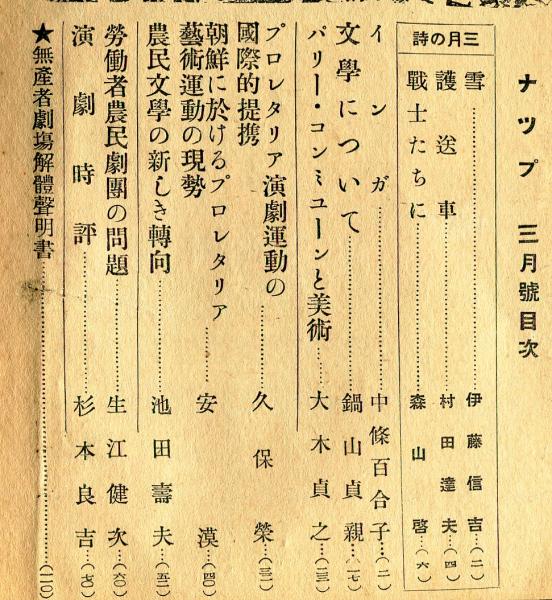 ナップ 三月號目次
三月の詩
雪……伊藤信吉…(二)
護送車……村田達夫…(四)
戰士たちに……森山啓…(六)
インガ……中條百合子…(一)
文學について……鍋山貞親…(一七)
パリー・コンミユーンと美術……大木貞之…(二三)
プロレタリア演劇運動の
國際的提携……久保榮…(三一)
朝鮮に於けるプロレタリア
藝術運動の現勢……安漠…(四〇)
農民文學の新しき轉向……池田壽夫…(五二)
勞働者農民劇團の問題……生江健次…(六〇)
演劇時評……杉本良吉…(七〇)
★無産者劇場解體聲明書……(一一〇)